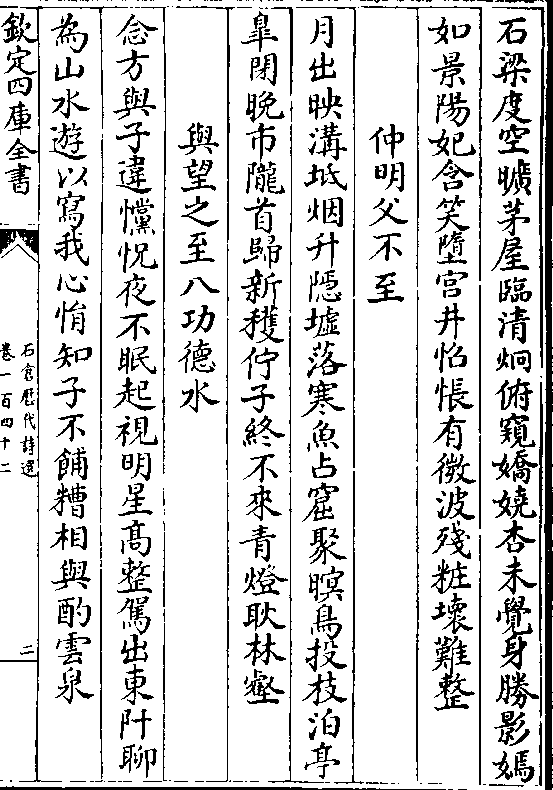 石梁度空曠茅屋臨清炯俯窺嬌嬈杏未覺身勝影嫣
如景陽妃含笑墮宮井怊悵有微波殘粧壞難整
仲明父不至
月出映溝坻烟升隱墟落寒魚占窟聚暝鳥投枝泊亭
皐閉晚市隴首歸新穫佇子終不來青燈耿林壑
與望之至八功德水
念方與子違懭怳夜不眠起視明星髙整駕出東阡聊
為山水遊以寫我心悁知子不餔糟相與酌雲泉
欽定四庫全書
石倉歷代詩選
卷一百四十二
二